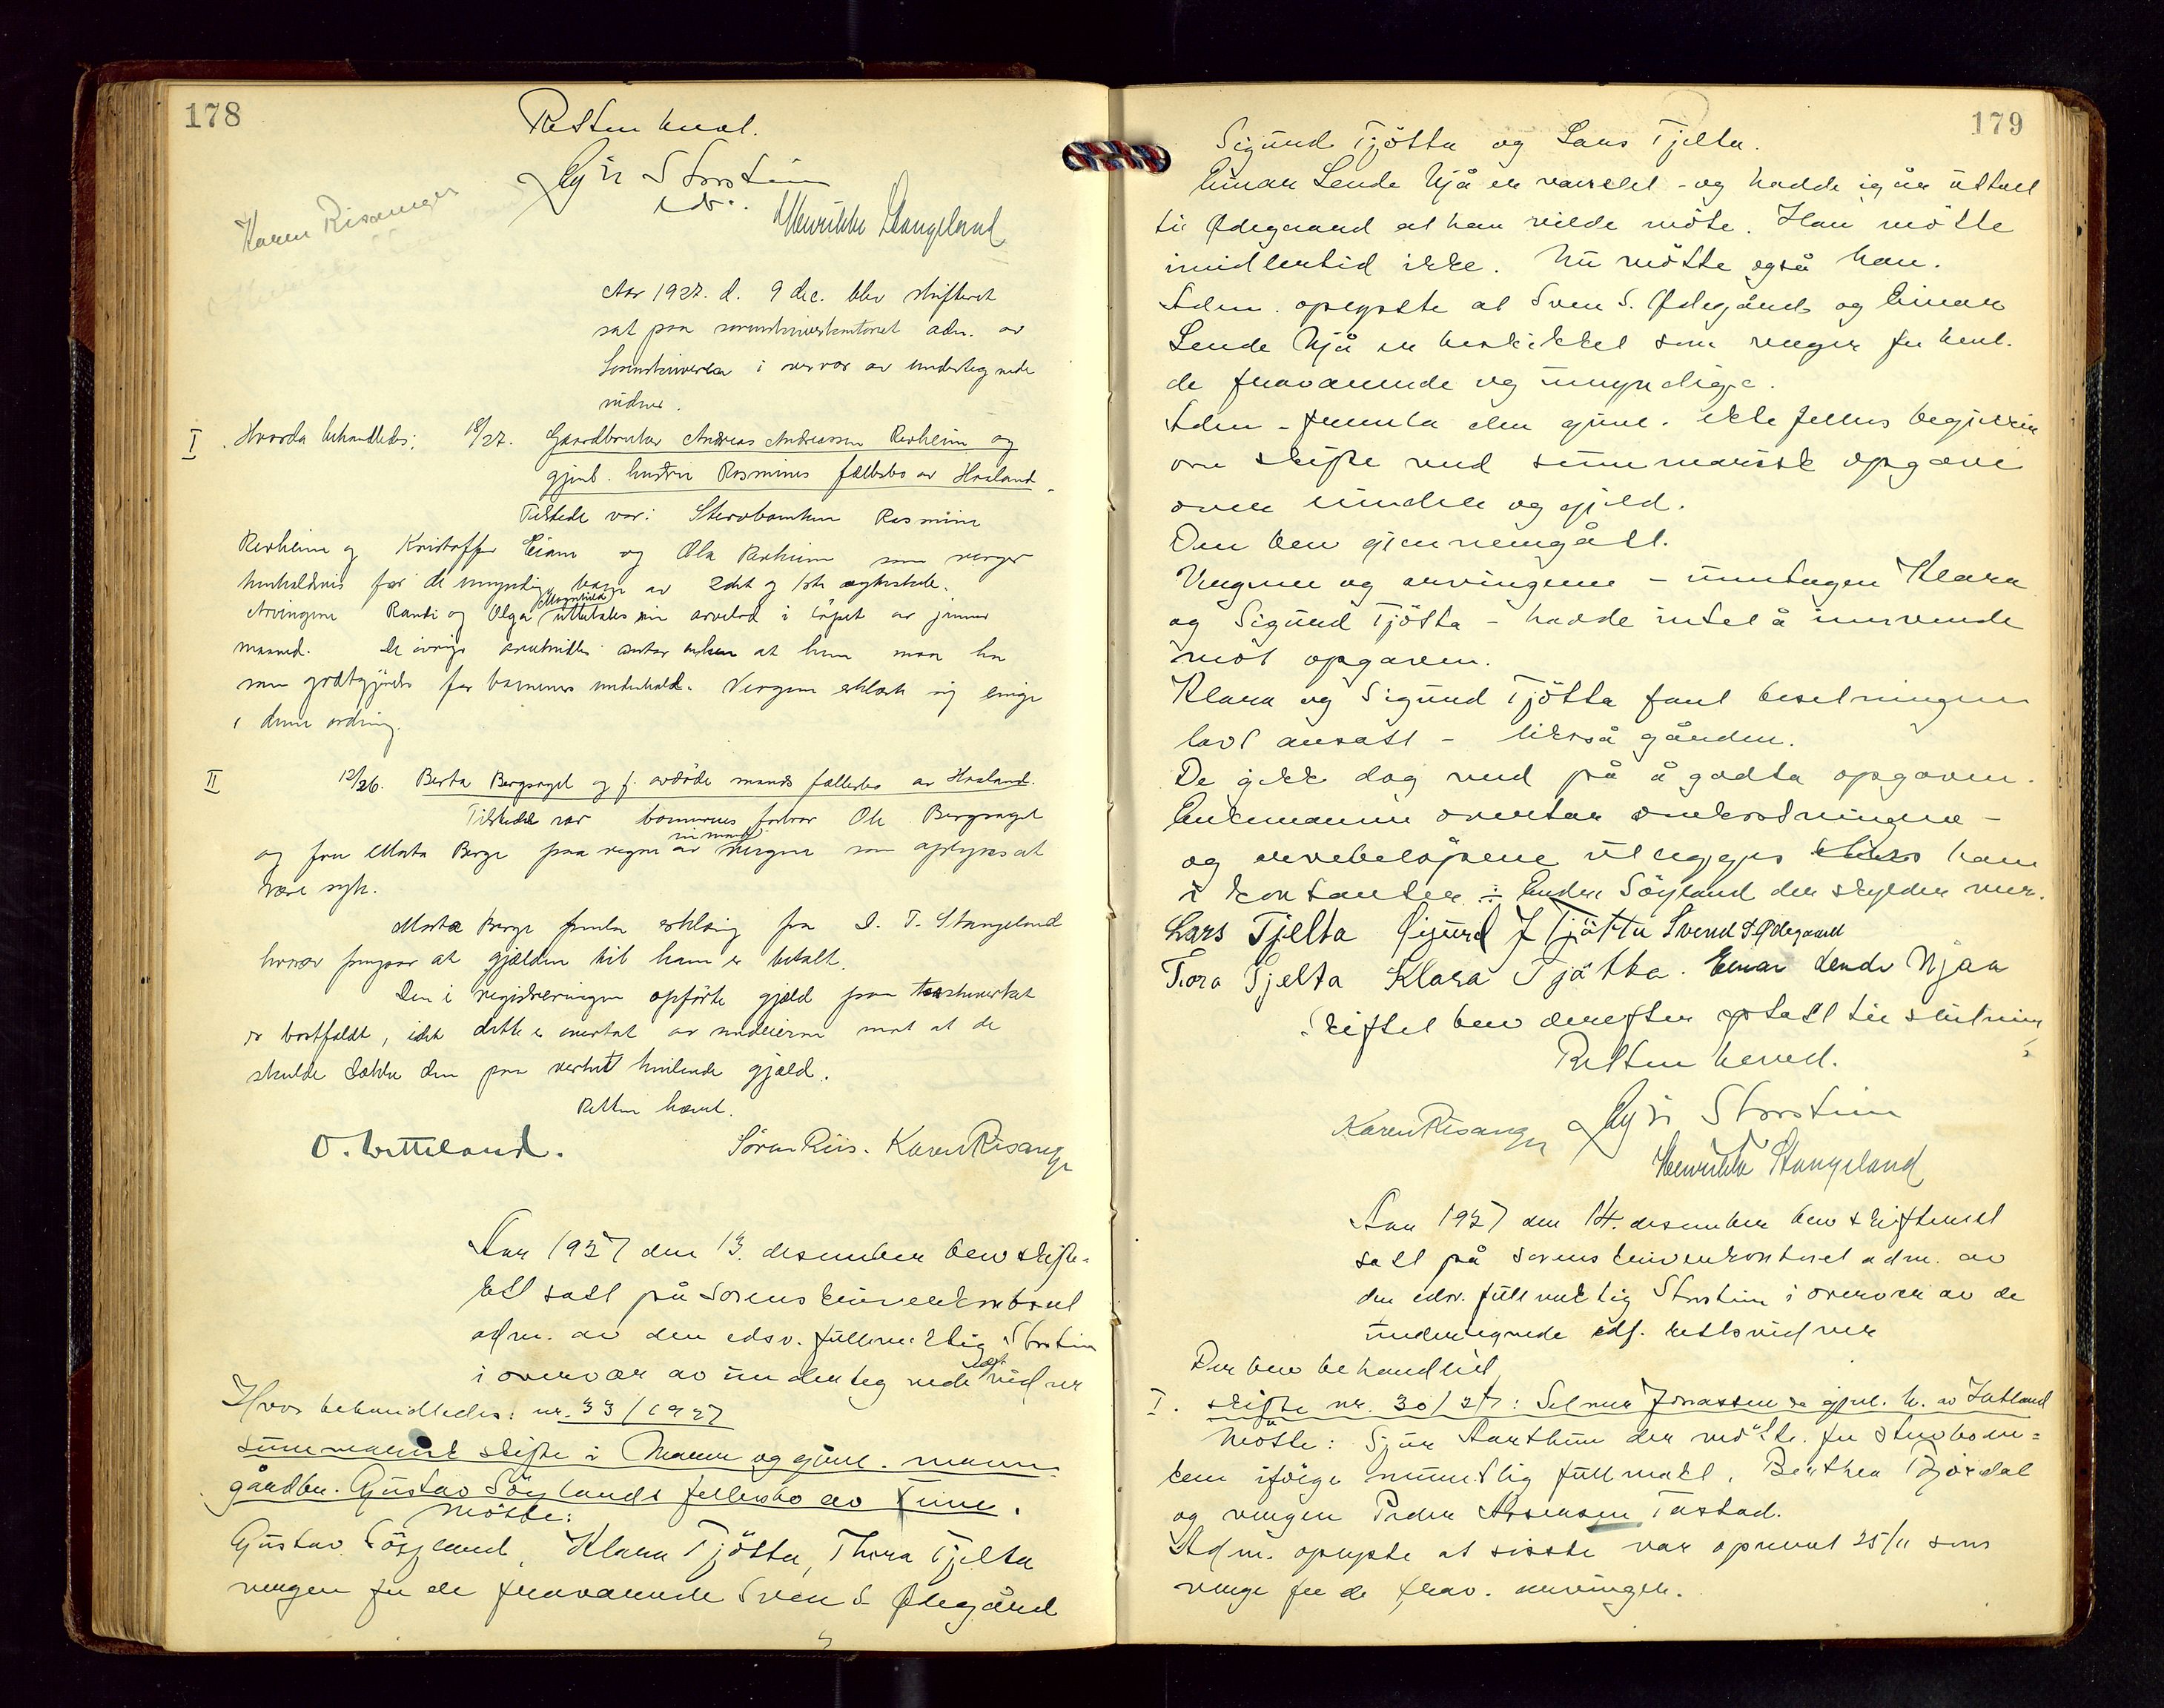 178
Retten hevet.
Storstein
edsv.
Karen Risanger
Henrikke Stangeland
Aar 1927. d. 9 dec. blev skifteret
sat paa sorenskriverkontoret adm. av
Sorenskriveren i overvær av undertegnede
vidner.
I. Hvorda behandledes: 18/27. Gaardbruker Andreas Andreassen Rexheim og
gjenl. hustru Rasmines fællesbo av Haaland.
Tilstede var: Stervboenken Rasmine
Rexheim og Kristoffer Eiane og Ola Rexheim som verger
henholdsvis for de umyndige barn av 2det og 1ste ægteskab.
Arvingene Randi og Olga Magnhild uttales sin arvelod i løpet av januar
maaned. De øvrige enken at hun maa ha
som godtgjørelse for barnenes underhold. Vergene erklærte sig enige
i denne ordning.
II 12/26. Berta Bergsagel og f. avdøde mands fællesbo av Haaland.
Tilstede var barnenes formynder Ole Bergsagel
og fru Marta Berge paa vegne av sin mand vergen som oplyses at
være syk.
Marta Berge fremla erklæring fra S. T. Stangeland
hvorav fremgaar at gjælden til ham er betalt.
Den i registreringen opførte gjæld paa
er bortfaldt, idet dette er overtat av medeierne mot at de
skulde dække den paa verket hvilende gjæld.
Retten hævet.
O. Wetteland. Søren Riis. Karen Risanger
Aar 1927 den 13. desember blev skifte-
rett satt på Sorenskriverkontoret
adm. av den edsv. fullmektig Storstein
i overvær av undertegnede vidner
Hvor behandledes: nr. 33/1927
summarisk skifte i Maren og gjenl. mann
gårdbr. Gustav Söylands fellesbo av Time.
Møtte:
Gustav Söyland, Klara Tjötta, Thora Tjelta
vergen for de fraværende Sven S. Ødegård
179
Sigurd Tjötta og Lars Tjelta.
Einar Lende Njå er varslet - og hadde igår uttalt
til Ødegaard at han vilde møte. Han møtte
imidlertid ikke. Nu møtte også han.
Adm. oplyste at Sven S. Ødegård og Einar
Lende Njå er beskikket som verger for henl.
de fraværende og umyndige.
Adm. fremla den gjenl. ektefelles begjæring
om skifte med summarisk opgave
over eiendele og gjeld.
Den blev gjennemgått.
Vergene og arvingene - unntagen Klara
og Sigurd Tjötta - hadde intet å innvende
mot opgaven.
Klara og Sigurd Tjötta fant besetningen
lavt ansatt - likeså gården.
De gikk dog med på å godta opgaven.
Enkemannen overtar omkostningene -
og arvebeløpene utlegges ham
i kontanter ÷ Endre Söyland der skylder mer.
Lars Tjelta Sigurd J Tjøtta Svend S. Ødegaard
Tora Tjelta Klara Tjøtta. Einar Lende Njaa
Skiftet blev derefter optatt til slutning
Retten hevet.
Karen Risanger Storstein
Henrikke Stangeland
Aar 1927 den 14. desember blev skifterett
satt på sorenskriverkontoret adm. av
den edsv. fullmektig Storstein i overvær av de
undertegnede edf. rettsvidner
Der blev behandlet
I. Skifte nr. 30/27: Selmer Jonassen & gjenl. h. av Jåtland
Møtte: Sjur Aarthun der møtte for stervboen=
ken ifølge muntlig fullmakt, Berthea Bjørdal
og vergen Peder Tastad.
Adm. oplyste at sisste var opnevnt 25/11 som
verge for de frav. arvinger.